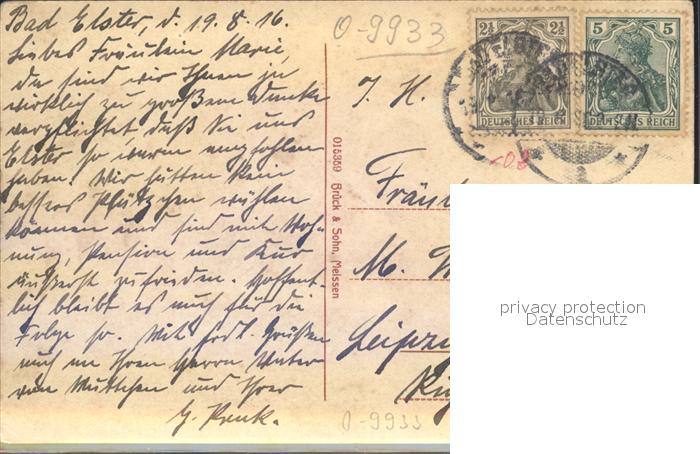 Bad Elster, d. 19.8.16.
Liebes Fräulein Marie,
da sind wir Ihnen ja
wirklich zu großem Danke
verpflichtet, daß Sie uns
Elster so warm empfohlen
haben. Wir hätten kein
besseres Plätzchen wählen
können und sind mit Woh-
nung, Pension und Kur
äußerst zufrieden. Hoffent-
lich bleibt es auch für die
Folge so. Mit herzl. Grüßen
auch an Ihren Herrn Vater
von Muttchen und Ihrer
O-9933
2½ 2½
DEUTSCHES REICH
5 5
DEUTSCHES REICH
I. H.
Fräu
M.
Leipzi
015359 Brück & Sohn, Meissen
privacy protection
Datenschutz
O-9933